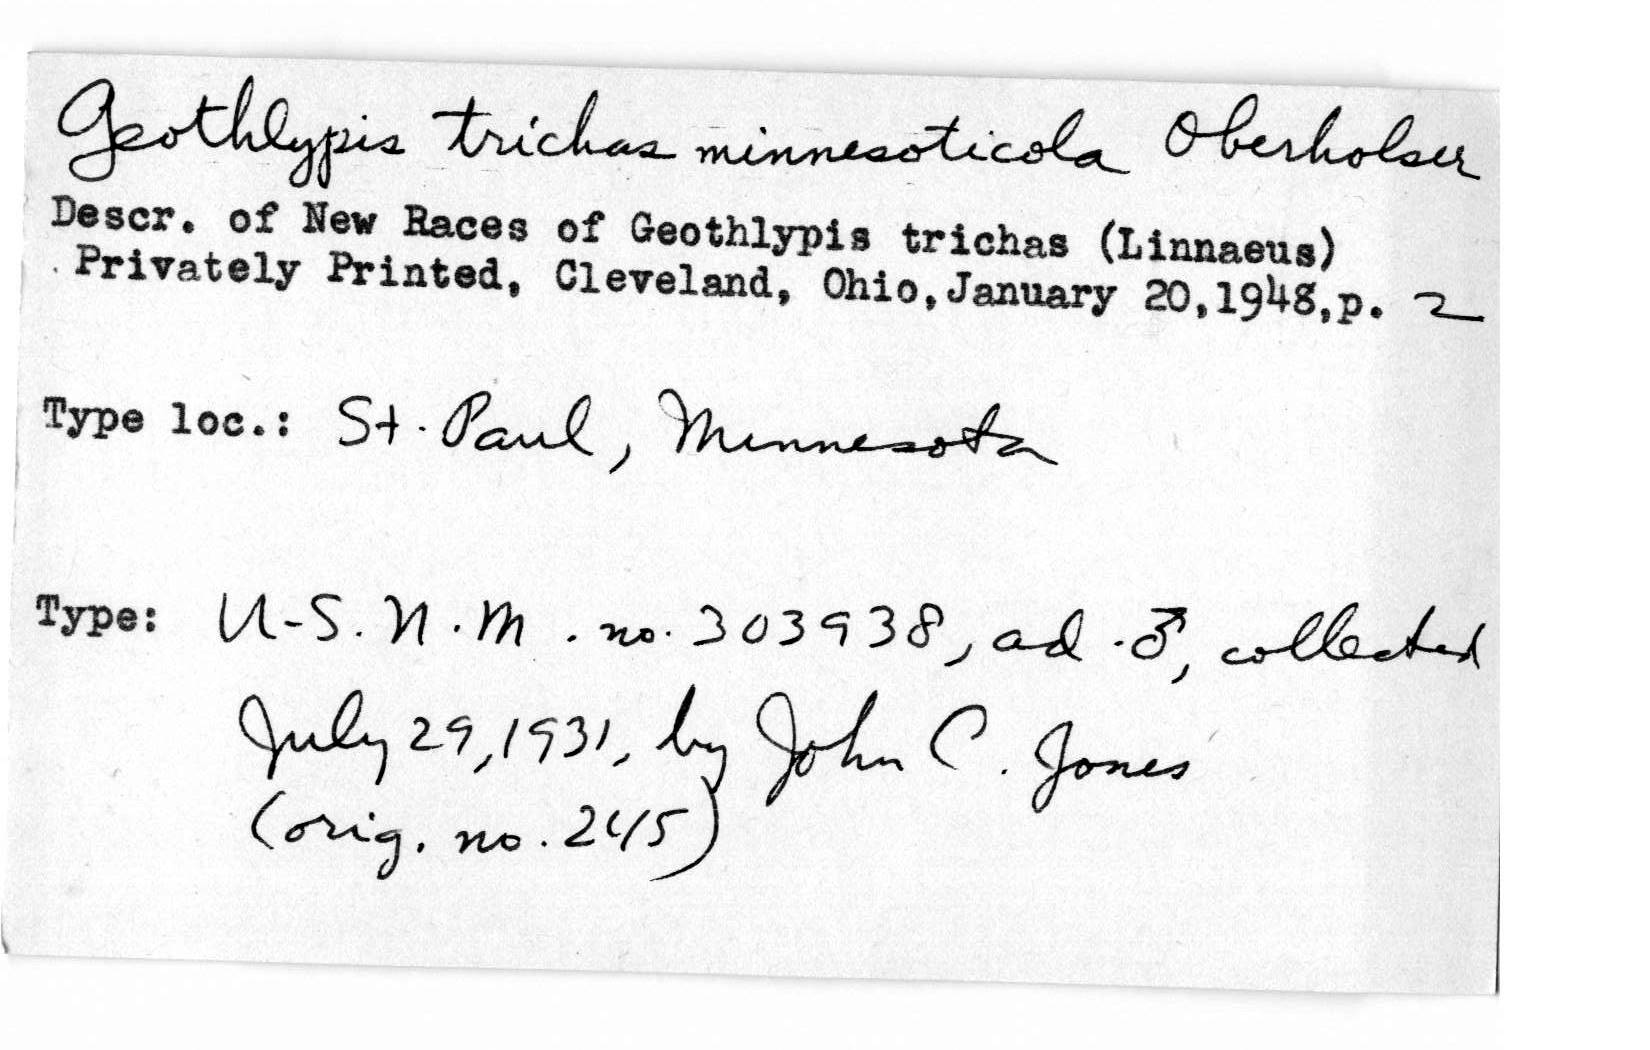 Geothlypis trichas minnesoticola Oberholser
Descr. of New Races of Geothlypis trichas (Linnaeus)
Privately Printed, Cleveland, Ohio, January 20, 1948, p. 2
Type loc.: St. Paul, Minnesota
Type: U.S.N.M. no. 303938, ad. ♂, collected
July 29, 1931, by John C. Jones
(orig. no. 245)